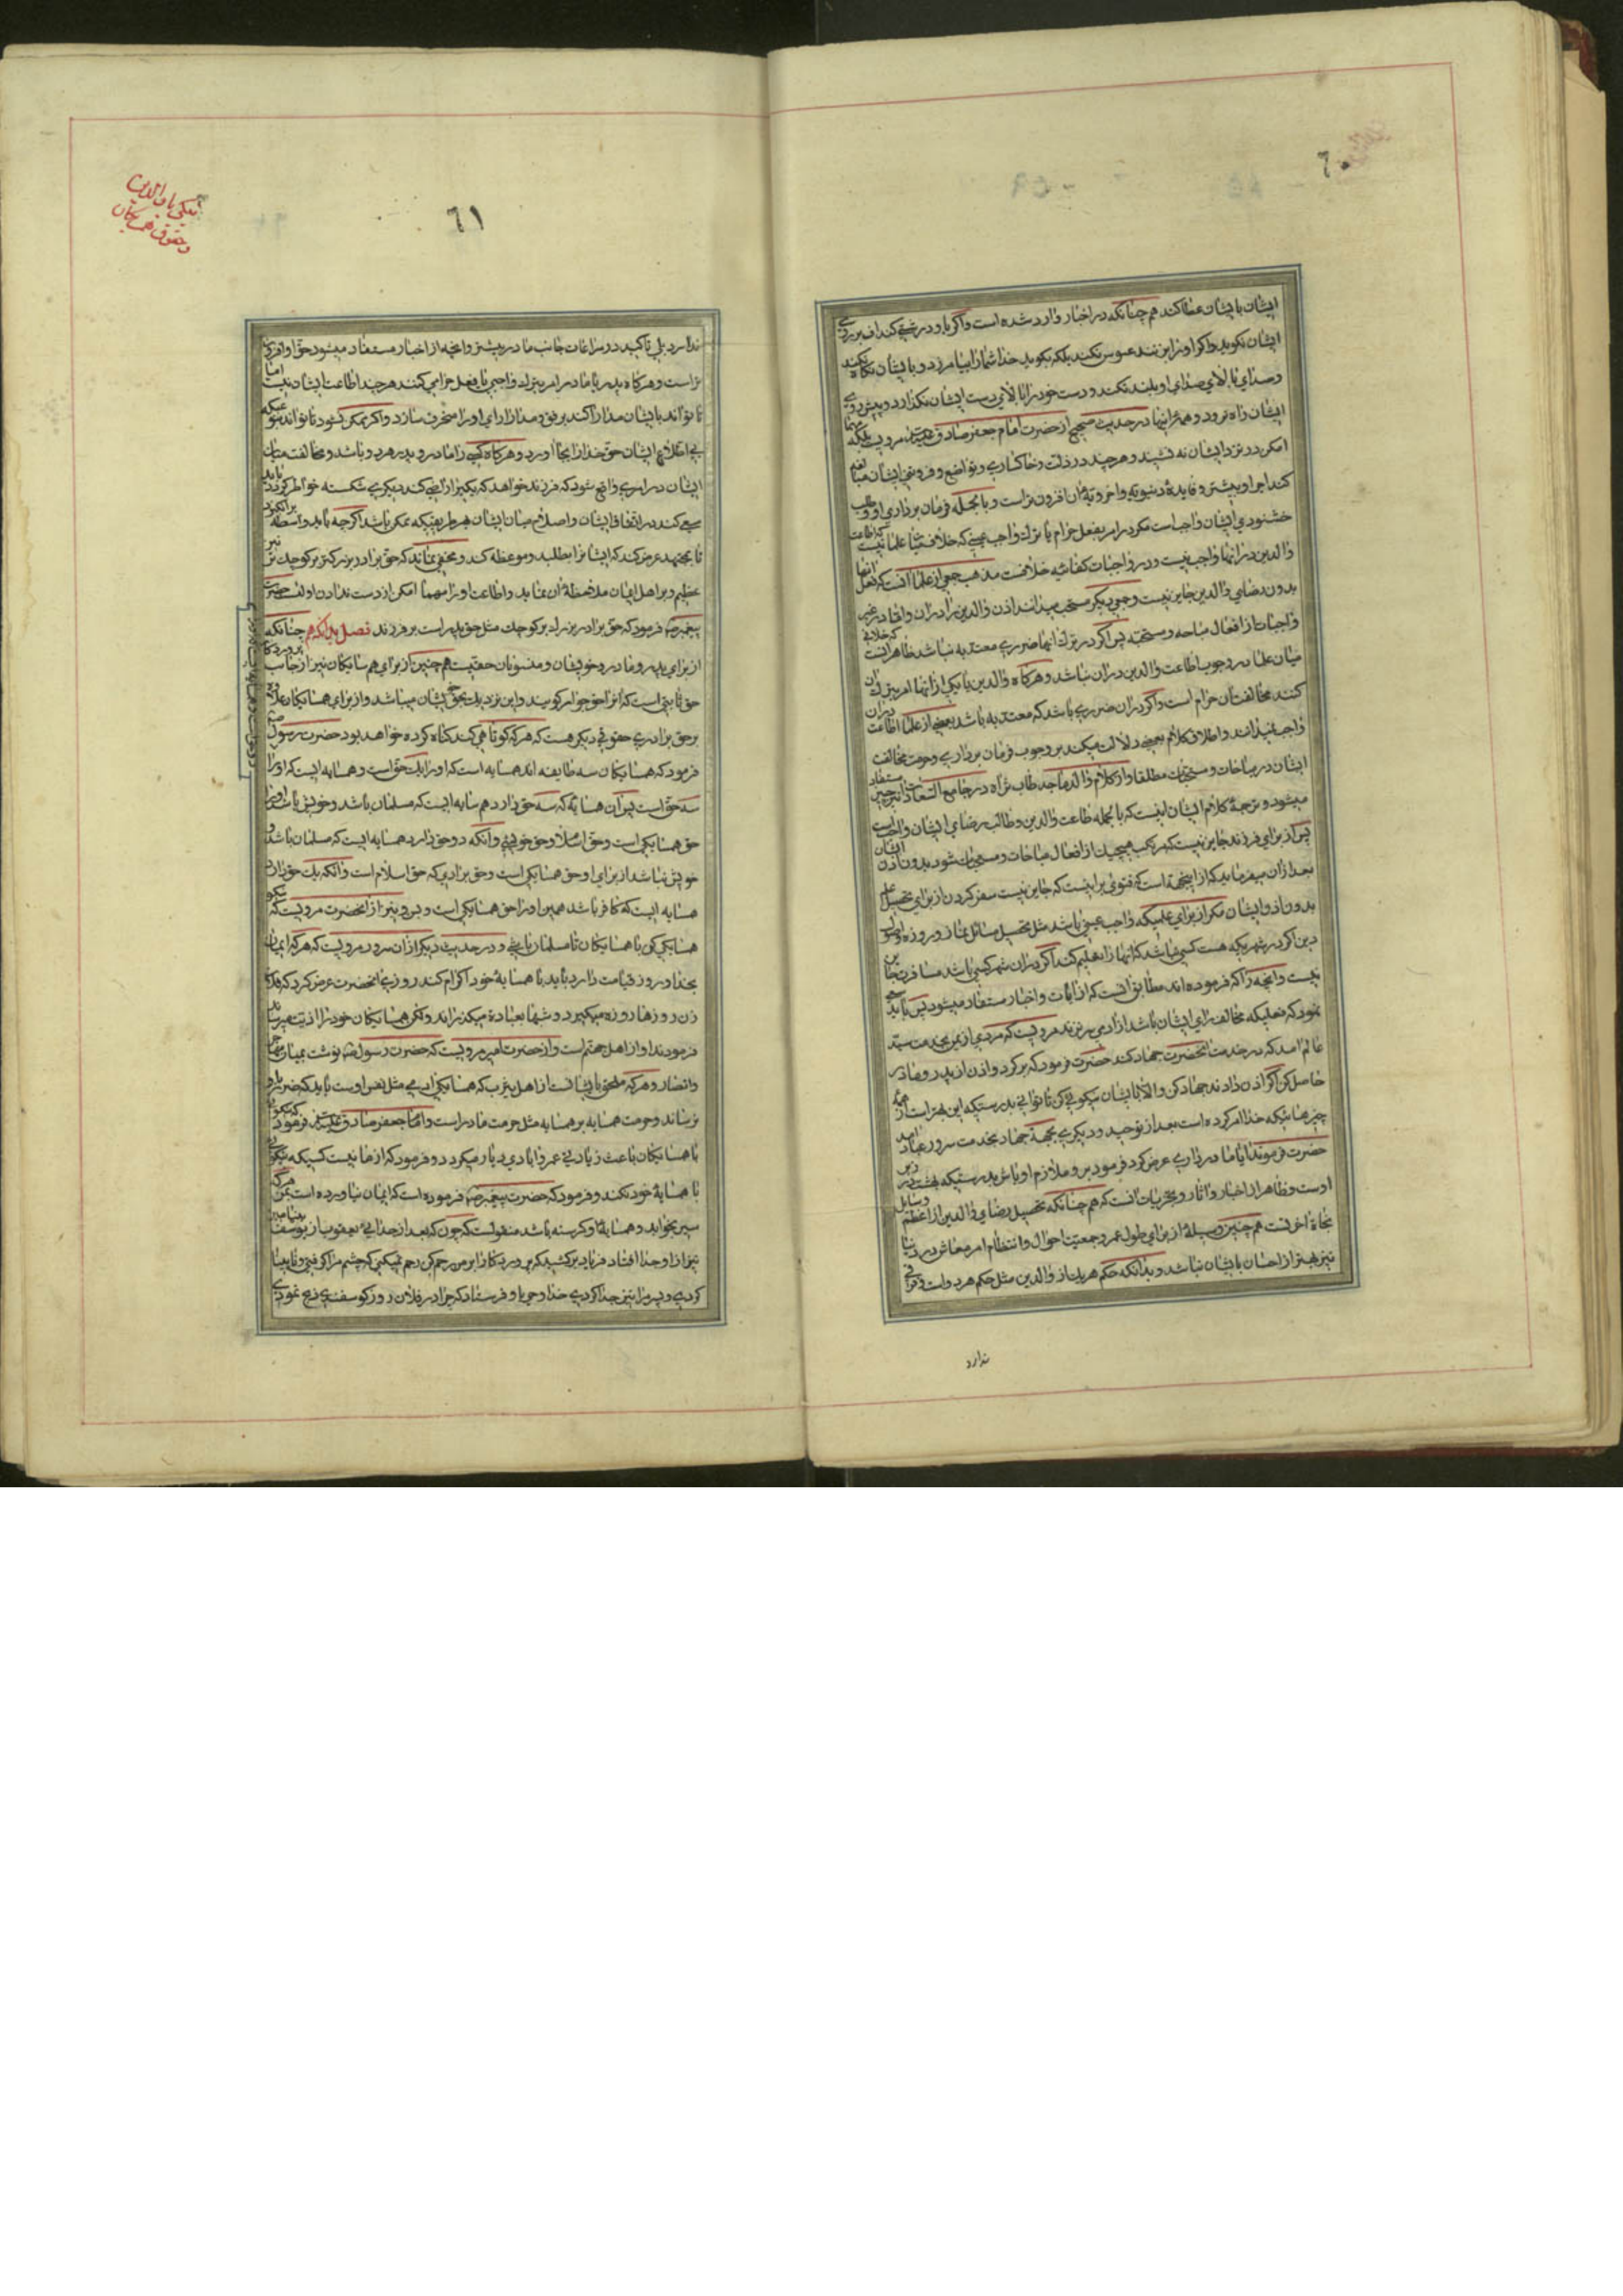 ٦٠
ایشان بایشان عطا کند هم چنانکه در اخبار وارد شده است واگر باو درشتی کند اف بروی
ایشان نکوید واکر او را بزنند عبوس نکند بلکه بکوید خدا شما را بیامرزد و بایشان نکاه نکند
وصدای بالای صدای او بلند نکند و دست خود را بالای دست ایشان نکذارد و پیش روی
ایشان راه نرود و همۀ اینها در حدیث صحیح از حضرت امام جعفر صادق مرویست بلکه
امکن در نزد ایشان نه نشیند و هر چند در ذلت و خاکساری و تواضع و فروتنی ایشان
کند اجر او بیشتر و فایدۀ دنیویه واخرویۀ ان افزون تر است و بالجمله فرمان برداری او و طلب
خشنودی ایشان واجب است مکر در امر بفعل حرام یا ترك واجب عینی که خلافی میان علما نیست
والدین در انها واجب نیست و در واجبات کفائیه خلافست مذهب جمعی از علما انست که فعل انها
بدون رضای والدین جایز نیست و جمعی دیکر مستحب میدانند اذن والدین را در ان واما در غیر
واجبات از افعال مباحه ومستحبه پس اکر در ترك انها ضرری معتد به نباشد ظاهر انست که خلافی
میان علما در وجوب اطاعت والدین در ان نباشد وهرکاه والدین یا یکی از انها امر بترك ان
کنند مخالفت ان حرام است واکر در ان ضرری باشد که معتد به باشد بعضی از علما اطاعت در ان
واجب نمیدانند واطلاق کلام بعضی دلالت میکند بر وجوب فرمان برداری وحرمت مخالفت
ایشان در مباحات ومستحبات مطلقا واز کلام والد ماجد طاب ثراه در جامع السعادات نیز چنین مستفاد
میشود وترجمۀ کلام ایشان اینست که بالجمله طاعت والدین وطلب رضای ایشان واجب است
پس از برای فرزند جایز نیست که مرتکب هیچیك از افعال مباحات ومستحبات شود بدون اذن ایشان
بعد از ان میفرماید که از اینجهة است که فتوی براینست که جایز نیست سفر کردن از برای تحصیل علم
بدون اذن ایشان مکر از برای علمیکه واجب عینی باشد مثل تحصیل مسائل نماز وروزه واصول
دین اکر در شهریکه هست کسی نباشد که انها را تعلیم کند اکر در ان شهر کسی باشد مسافرت جایز
نیست وانچه را که فرموده اند مطابق انست که از ایات واخبار مستفاد میشود پس باید سعی
نمود که فعلیکه مخالف رای ایشان باشد از ادمی سر نزند مرویست که مردی از یمن بخدمت سید
عالم امد که در خدمت انحضرت جهاد کند حضرت فرمود که برکرد واذن از پدر ومادر
حاصل کن اکر اذن دادند جهاد کن والا بایشان نیکوئی کن تا توانی بدرستیکه این بهتر است از همه
چیزهائیکه خدا امر کرده است بعد از توحید ودیکری بجهة جهاد بخدمت سرور عباد امد
حضرت فرمودند ایا مادر داری عرض کرد فرمود برو ملازم او باش بدرستیکه بهشت در زیر
اوست وظاهر از اخبار واثار وتجربیات انست که هم چنانکه تحصیل رضای والدین از اعظم وسایل
نجاة اخرتست هم چنین وسیلۀ از برای طول عمر وجمعیت احوال وانتظام امر معاش در دنیا
نیز بهتر از احسان بایشان نباشد وبدانکه حکم هریك از والدین مثل حکم هر دو است وفرقی
ندارد
٦١
نیکی با والدین
وحقوق همسایکان
ندارد بلی تاکید در مراعات جانب مادر بیشتر وانچه از اخبار مستفاد میشود حق او افزون
تر است وهرکاه پدر یا مادر امر بترك واجبی یا فعل حرامی کنند هر چند اطاعت ایشان نیست اما
تا تواند بایشان مدارا کند برفق ومدارا رای او را منحرف سازد واکر ممکن نشود تا تواند بنوعیکه
بی اطلاع ایشان حق خدا را بجا اورد وهرکاه کسی را مادر و پدر هر دو باشد ومخالفت میان
ایشان در امری واقع شود که فرزند خواهد که یکی را راضی کند دیکری شکسته خواطر کردد باید
سعی کند در اتفاق ایشان واصلاح میان ایشان بهر طریقیکه ممکن باشد اکرچه باید واسطه برانکیزد
تا بمجتهد عرض کند که ایشانرا بطلبد وموعظه کند ومخفی نماند که حق برادر بزرکتر بر کوچك تر نیز
عظیم وبر اهل ایمان ملاحظۀ ان نماید واطاعت او را مهما امکن از دست ندادن اولیست حضرت
پیغمبر ص فرمود که حق برادر بزرك بر کوچك مثل حق پدر است بر فرزند فصل بدانکه هم چنانکه
از برای پدر ومادر وخویشان ومنسوبان حقیست هم چنین از برای همسایکان نیز از جانب پروردکار
حق ثابتی است که انرا حق جوار کویند واین نزدیك بحق خویشان میباشد واز برای همسایکان علاوه
بر حق برادری حقوقی دیکر هست که هرکه کوتاهی کند کناه کرده خواهد بود حضرت رسول ص
فرمود که همسایکان سه طایفه اند همسایه است که او را یك حق است وهمسایه ایست که او را
سه حق است پس ان همسایۀ که سه حق دارد همسایه ایست که مسلمان باشد وخویش باشد او را
حق همسایکی است وحق اسلام وحق خویشی وانکه دو حق دارد همسایه ایست که مسلمان باشد و
خویش نباشد از برای او حق همسایکی است وحق برادری که حق اسلام است وانکه یك حق دارد
همسایه ایست که کافر باشد همین او را حق همسایکی است وبس ونیز از انحضرت مرویست که نیکو
همسایکی کن با همسایکان تا مسلمان باشی ودر حدیث دیکر از ان سرور مرویست که هرکه ایمان
بخدا وروز قیامت دارد باید با همسایۀ خود اکرام کند روزی انحضرت عرض کرد که فلان
زن روزها روزه میکیرد وشبها بعبادة میکذراند ولکن همسایکان خود را اذیت میرساند
فرمودند او از اهل جهنم است واز حضرت امیر مرویست که حضرت رسول ص نوشت میان مهاجر
وانصار وهرکه ملحق بایشانست از اهل یثرب که همسایکی ادمی مثل نفس اوست باید که ضرر باو
نرساند وحرمت همسایه بر همسایه مثل حرمت مادر است وامام جعفر صادق فرمود که نیکوئی
با همسایکان باعث زیادتی عمر وابادی دیار میکردد وفرمود که از ما نیست کسیکه نیکوئی
با همسایۀ خود نکند وفرمود که حضرت پیغمبر ص فرموده است که ایمان نیاورده است بمن هرکه
سیر بخوابد وهمسایۀ او کرسنه باشد منقولست که چون که بعد از جدائی یعقوب از یوسف بنیامین
نیز از او جدا افتاد فریاد برکشید که پروردکارا بر من رحم کن رحم نمیکنی که چشم مرا کرفتی ونابینا
کردی وپسر مرا نیز جدا کردی خدا وحی باو فرستاد که چرا در فلان روز کوسفندی ذبح نمودی